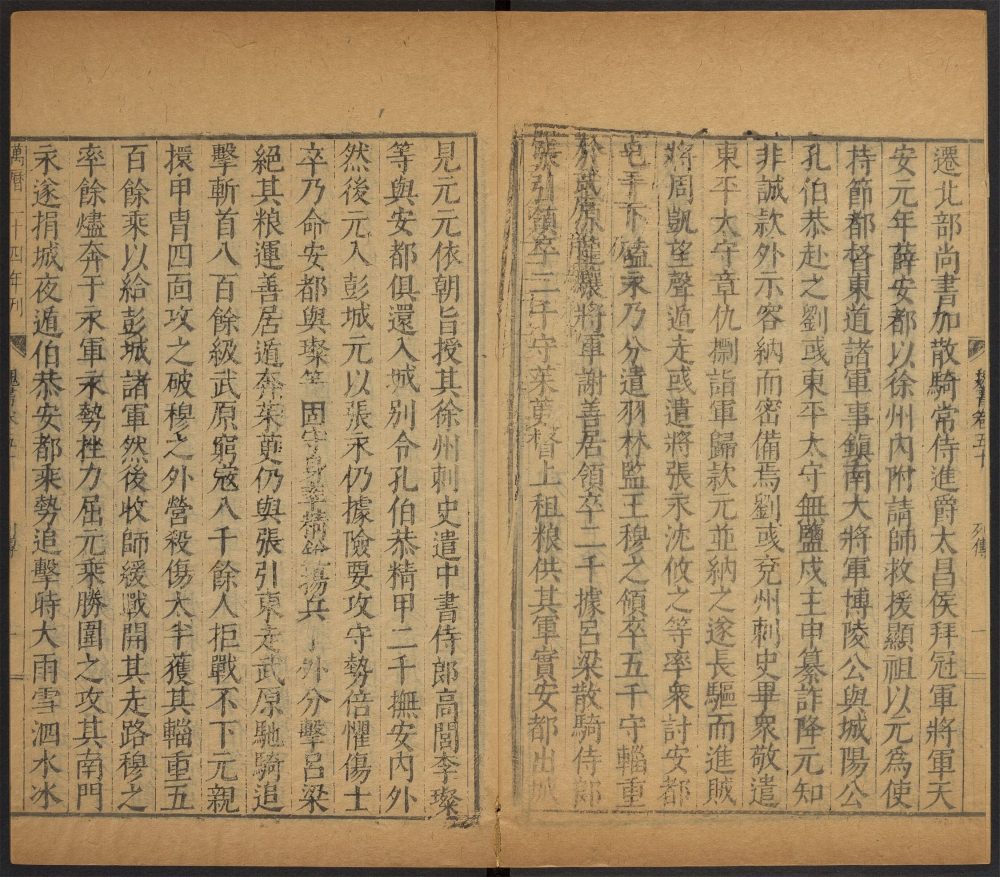 遷北部尚書加散騎常侍進爵太昌侯拜冠軍將軍天
安元年薛安都以徐州內附請師救援顯祖以元為使
持節都督東道諸軍事鎮南大將軍博陵公與城陽公
孔伯恭赴之劉彧東平太守無鹽戍主申纂詐降元知
非誠款外示容納而密備焉劉彧兗州刺史畢眾敬遣
東平太守章仇𢷤詣軍歸款元並納之遂長驅而進賊
將周凱望聲遁走彧遣將張永沈攸之等率衆討安都
屯于下磕永乃分遣羽林監王穆之領卒五千守輜重
於武原龍驤將軍謝善居領卒二千據呂梁散騎侍郎
張引領卒二千守茱萸督上租粮供其軍實安都出城
見元元依朝旨授其徐州刺史遣中書侍郎高閭李璨
等與安都俱還入城別令孔伯恭精甲二千撫安內外
然後元入彭城元以張永仍據險要攻守勢倍懼傷士
卒乃命安都與璨等固守身率精銳揚兵于外分擊呂梁
絕其粮運善居遁奔茱萸仍與張引東走武原馳騎追
擊斬首八百餘級武原窮寇八千餘人拒戰不下元親
擐甲冑四面攻之破穆之外營殺傷太半獲其輜重五
百餘乘以給彭城諸軍然後收師緩戰開其走路穆之
率餘燼奔于永軍永勢挫力屈元乘勝圍之攻其南門
永遂捐城夜遁伯恭安都乘勢追擊時大雨雪泗水冰
萬曆二十四年刊
魏書卷五十
列傳